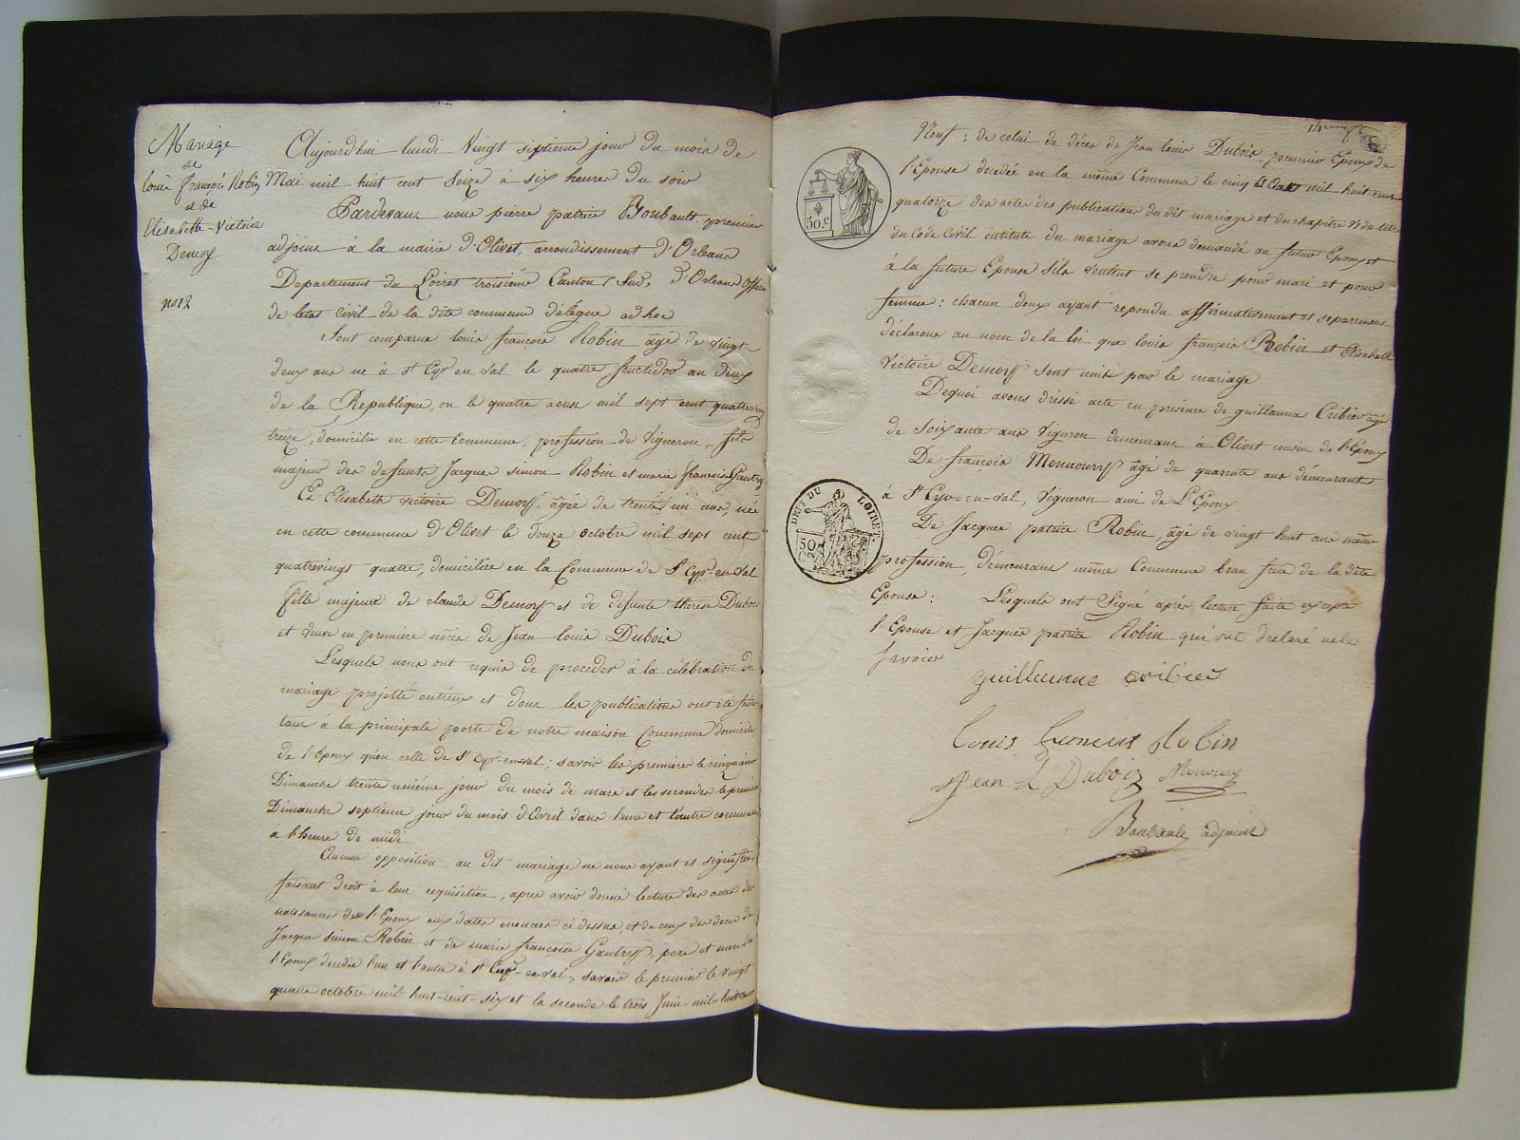 Mariage
de
Louis françois Robin
et de
Elisabeth-Victoire
Demory
no 12
Aujourd'hui lundi Vingt septieme jour du mois de
Mai mil huit cent Seize à six heures du soir
Pardevant nous pierre patrice Boubault premier
adjoint à la mairie d'Olivet, arrondissement d'Orleans
Departement du Loiret troisième Canton, Sud, d'Orleans officier
de letat civil de la dite commune délégué ad hoc
Sont comparus louis françois Robin agé de vingt
deux ans né à St Cyr en val le quatre fructidor an deux
de la Republique, ou le quatre aout mil sept cent quatrevingt
treize, domicilié en cette Commune, profession de Vigneron, fils
majeur des defunts Jacque simon Robin et marie françoise Gautry
Et Elisabeth victoire Demory agée de trente un ans, née
en cette commune d'Olivet le douze octobre mil sept cent
quatrevingt quatre, domiciliée en la Commune de St Cyr-en-Val
fille majeur de claude Demory et de defunte therese Dubois
et veuve en premiere noce de Jean louis Dubois
Lesquels nous ont requis de proceder à la célébration du
mariage projetté entr'eux et dont les publications ont été faites
tant à la principale porte de notre maison Commune domicile
de l'Epoux qu'en celle de St Cyr-en-val: savoir les premieres le
Dimanche trente unième jour du mois de mars et les secondes le
Dimanche septieme jour du mois d'avril dans l'une et l'autre commune
a l'heure de midi
Aucune opposition au dit mariage ne nous ayant été signifiée
faisant droit à leur requisition, apres avoir donné lecture des actes de
naissances des Epoux aux dates enoncées ci dessus, et de ceux des deces de
Jacque simon Robin et de marie françoise Gautry, pere et mere de
l'Epoux decedés l'un et l'autre à St Cyr-en-val, savoir le premier le vingt
quatre octobre mil huit-cent-six et la seconde le trois Juin mil huit cent
Neuf: de celui de déces de Jean louis Dubois premier Epoux de
l'Epouse decedé en la même Commune le cinq mil huit cent
quatorze des actes des publication du dit mariage et du chapitre VI du titre
du Code Civil intitulé du mariage avons demandé au futur Epoux et
à la future Epouse s'ils veulent se prendre pour mari et pour
femme: chacun deux ayant repondu affirmativement et separement
déclarons au nom de la loi que louis françois Robin et Elisabeth
Victoire Demory sont unis par le mariage
Dequoi avons dressé acte en présence de guillaume Cribier agé
de Soixante ans Vigneron demeurant à Olivet cousin de l'Epoux
De françois Mennoury agé de quarante ans demeurant
à St Cyr-en-val, Vigneron ami de L'Epoux
De Jacques patrice Robin, agé de vingt huit ans même
profession, demeurant même Commune beau frere de la dite
Epouse: Lesquels ont Signé après lecture faite excepté
l'Epouse et Jacques patrice Robin qui ont declaré ne le
savoir
guillaume cribier
Louis francois Robin
Jean L Dubois
Boubault adjoint
50 c.
DEPT DU LOIRET.
50